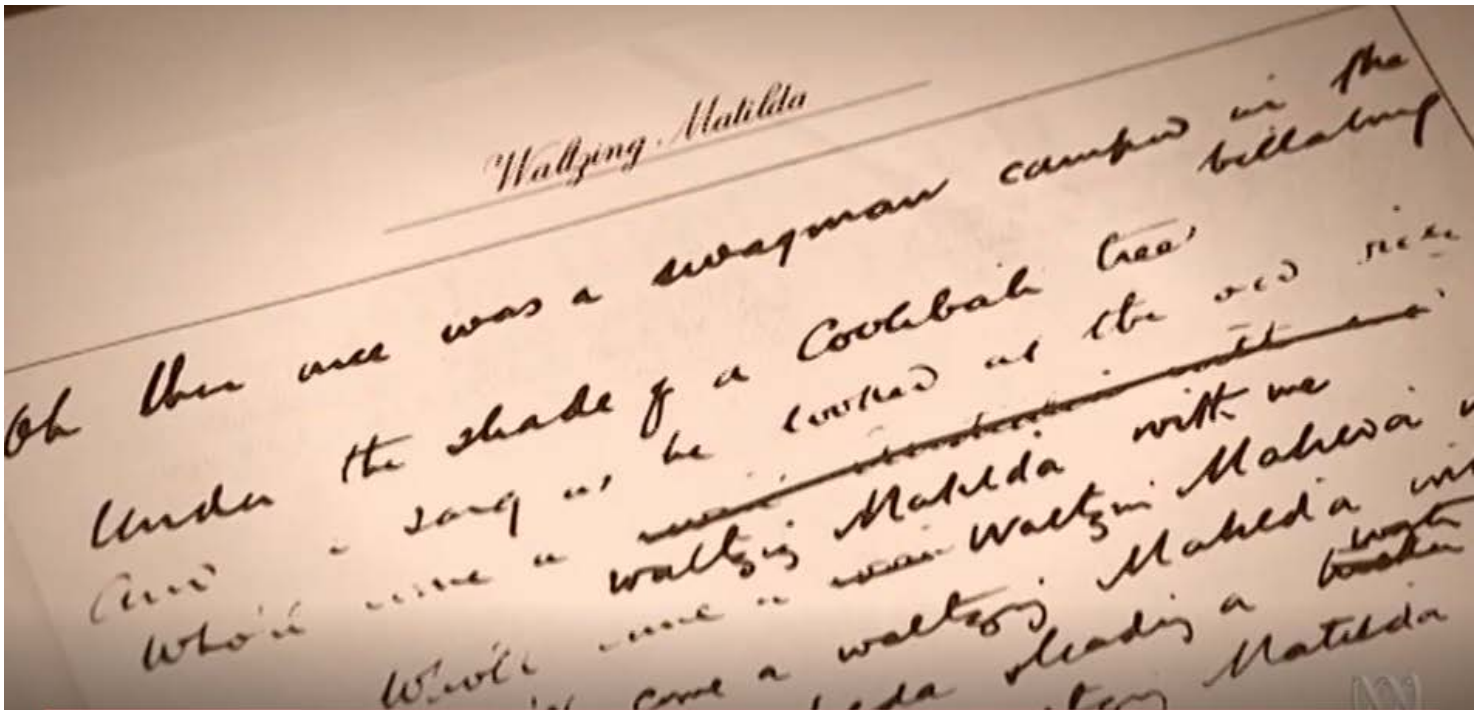 Waltzing Matilda
Oh there once was a swagman camped in the
billabong
Under the shade of a Coolibah tree
And he sang as he looked at the old
Who'll come a
waltzing Matilda with me
Who'll come a Waltzing Matilda
come a waltzing Matilda
leading a
Matilda